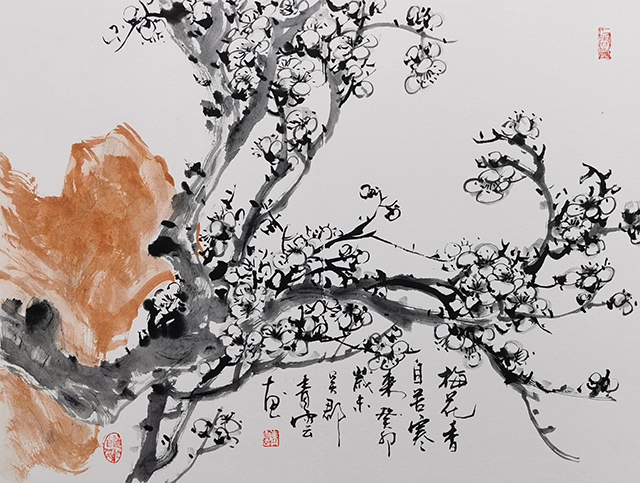 梅花香
自苦寒
来癸卯
歲末
吴郡
青云
画